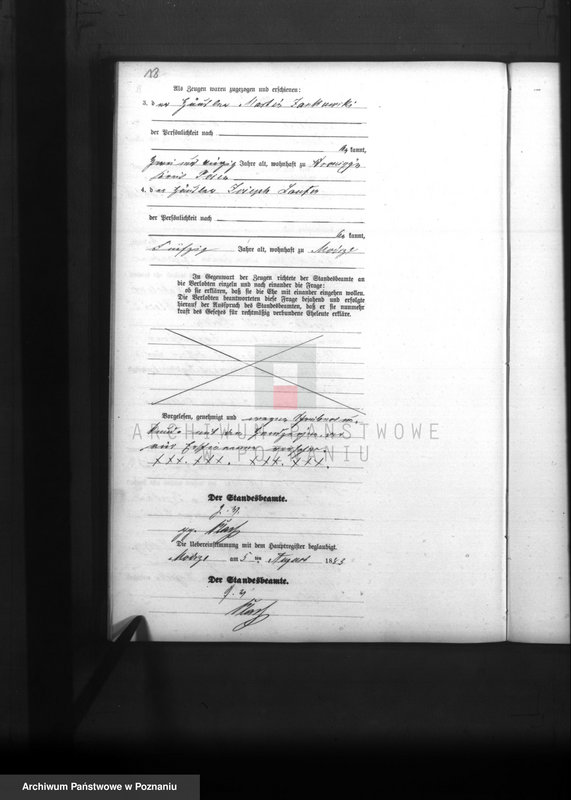 18
Als Zeugen waren zugezogen und erschienen:
3. der Häusler Martin Jankowski
der Persönlichkeit nach
kannt,
zwei und vierzig Jahre alt, wohnhaft zu
Kreis Posen
4. der Häusler Joseph
der Persönlichkeit nach
kannt,
Fünfzig Jahre alt, wohnhaft zu
In Gegenwart der Zeugen richtete der Standesbeamte an
die Verlobten einzeln und nach einander die Frage:
ob sie erklären, daß sie die Ehe mit einander eingehen wollen.
Die Verlobten beantworteten diese Frage bejahend und erfolgte
hierauf der Ausspruch des Standesbeamten, daß er sie nunmehr
kraft des Gesetzes für rechtmäßig verbundene Eheleute erkläre.
Vorgelesen, genehmigt und wegen
mit den Handzeichen der
+++. +++. +++. +++.
ARCHIWUM PAŃSTWOWE
W POZNANIU
Der Standesbeamte.
gez.
Die Uebereinstimmung mit dem Hauptregister beglaubigt.
am 5 ten August 1883
Der Standesbeamte.
Archiwum Państwowe w Poznaniu